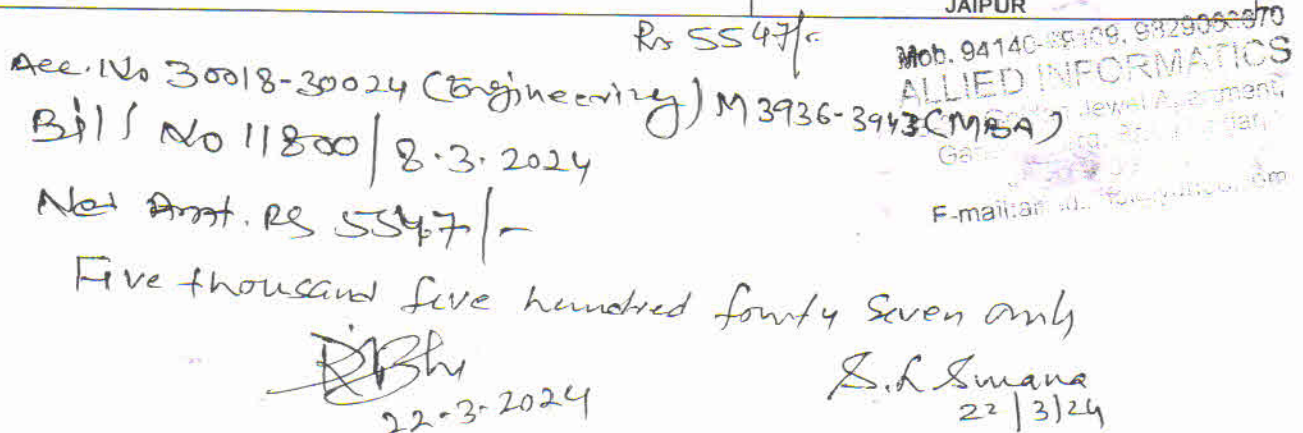 JAIPUR
Rs 5547/-
Mob. 94140-
ALLIED INFORMATICS
Jewel
Acc. No 30018-30024 (Engineering) M 3936-3943 (MBA)
Bill No 11800 | 8.3.2024
Net Amt. RS 5547/-
E-mail:
Five thousand five hundred fourty Seven only
22-3-2024
22/3/24